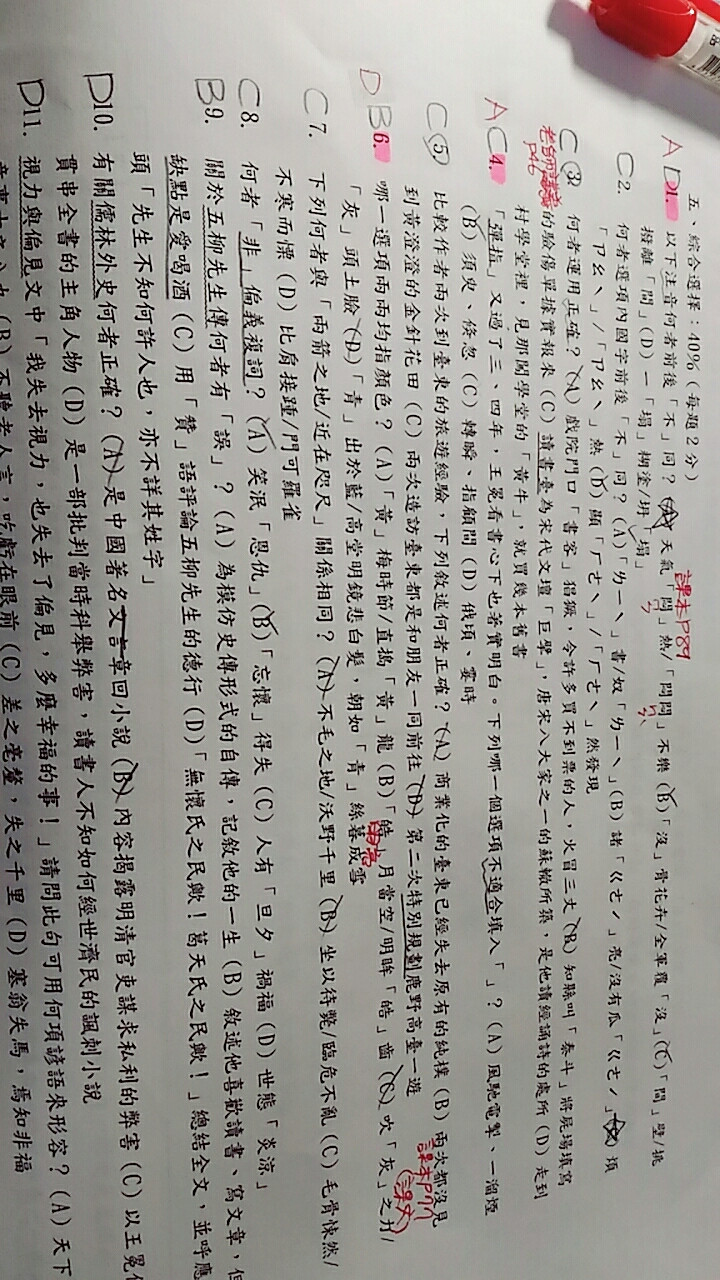 五、綜合選擇：40%（每題 2 分）
課本P89
A D 1. 以下注音何者前後「不」同？(A)天氣「悶」熱/「悶悶」不樂 (B)「沒」骨花卉/全軍覆「沒」(C)「間」壁/挑
撥離「間」(D) 一「塌」糊塗/坍「塌」
C 2. 何者選項內國字前後「不」同？(A)「ㄌㄧㄝˋ」書/奴「ㄌㄧˋ」(B) 諸「ㄍㄜˊ」亮/沒有瓜「ㄍㄜˊ」
「ㄗㄠˋ」/「ㄗㄠˋ」熱 (D) 顯「ㄏㄜˋ」/「ㄏㄜˋ」然發現
C 3. 何者運用正確？(A) 戲院門口「書客」猖獗，令許多買不到票的人，火冒三丈 (B) 知縣叫「泰斗」將屍場填寫
老師講義 P46
的驗傷單據實報來 (C) 讀書臺為宋代文壇「巨擘」，唐宋八大家之一的蘇轍所築，是他讀經誦詩的處所 (D) 走到
村學堂裡，見那鬧學堂的「黃牛」，就買幾本舊書
A C 4. 「彈指」又過了三、四年，王冕看書心下也著實明白。下列哪一個選項不適合填入「 」？(A) 風馳電掣、一溜煙
(B) 須臾、倏忽 (C) 轉瞬、指顧間 (D) 俄頃、霎時
C 5. 比較作者兩次到臺東的旅遊經驗，下列敘述何者正確？(A) 商業化的臺東已經失去原有的純樸 (B) 兩次都沒見
到黃澄澄的金針花田 (C) 兩次造訪臺東都是和朋友一同前往 (D) 第二次特別規劃鹿野高臺一遊
課本P71
D B 6. 哪一選項兩兩均指顏色？(A)「黃」梅時節/直搗「黃」龍 (B)「皓」月當空/明眸「皓」齒 (C) 吹「灰」之力/
「灰」頭土臉 (D)「青」出於藍/高堂明鏡悲白髮，朝如「青」絲暮成雪
C 7. 下列何者與「兩箭之地/近在咫尺」關係相同？(A) 不毛之地/沃野千里 (B) 坐以待斃/臨危不亂 (C) 毛骨悚然/
不寒而慄 (D) 比肩接踵/門可羅雀
C 8. 何者「非」偏義複詞？(A) 笑泯「恩仇」(B)「忘懷」得失 (C) 人有「旦夕」禍福 (D) 世態「炎涼」
B 9. 關於五柳先生傳何者有「誤」？(A) 為模仿史傳形式的自傳，記敘他的一生 (B) 敘述他喜歡讀書、寫文章，但
缺點是愛喝酒 (C) 用「贊」語評論五柳先生的德行 (D)「無懷氏之民歟！葛天氏之民歟！」總結全文，並呼應
頭「先生不知何許人也，亦不詳其姓字」
D 10. 有關儒林外史何者正確？(A) 是中國著名文言章回小說 (B) 內容揭露明清官吏謀求私利的弊害 (C) 以王冕
貫串全書的主角人物 (D) 是一部批判當時科舉弊害，讀書人不知如何經世濟民的諷刺小說
D 11. 視力與偏見文中「我失去視力，也失去了偏見，多麼幸福的事！」請問此句可用何項諺語來形容？(A) 天下
(B) 不聽老人言，吃虧在眼前 (C) 差之毫釐，失之千里 (D) 塞翁失馬，焉知非福